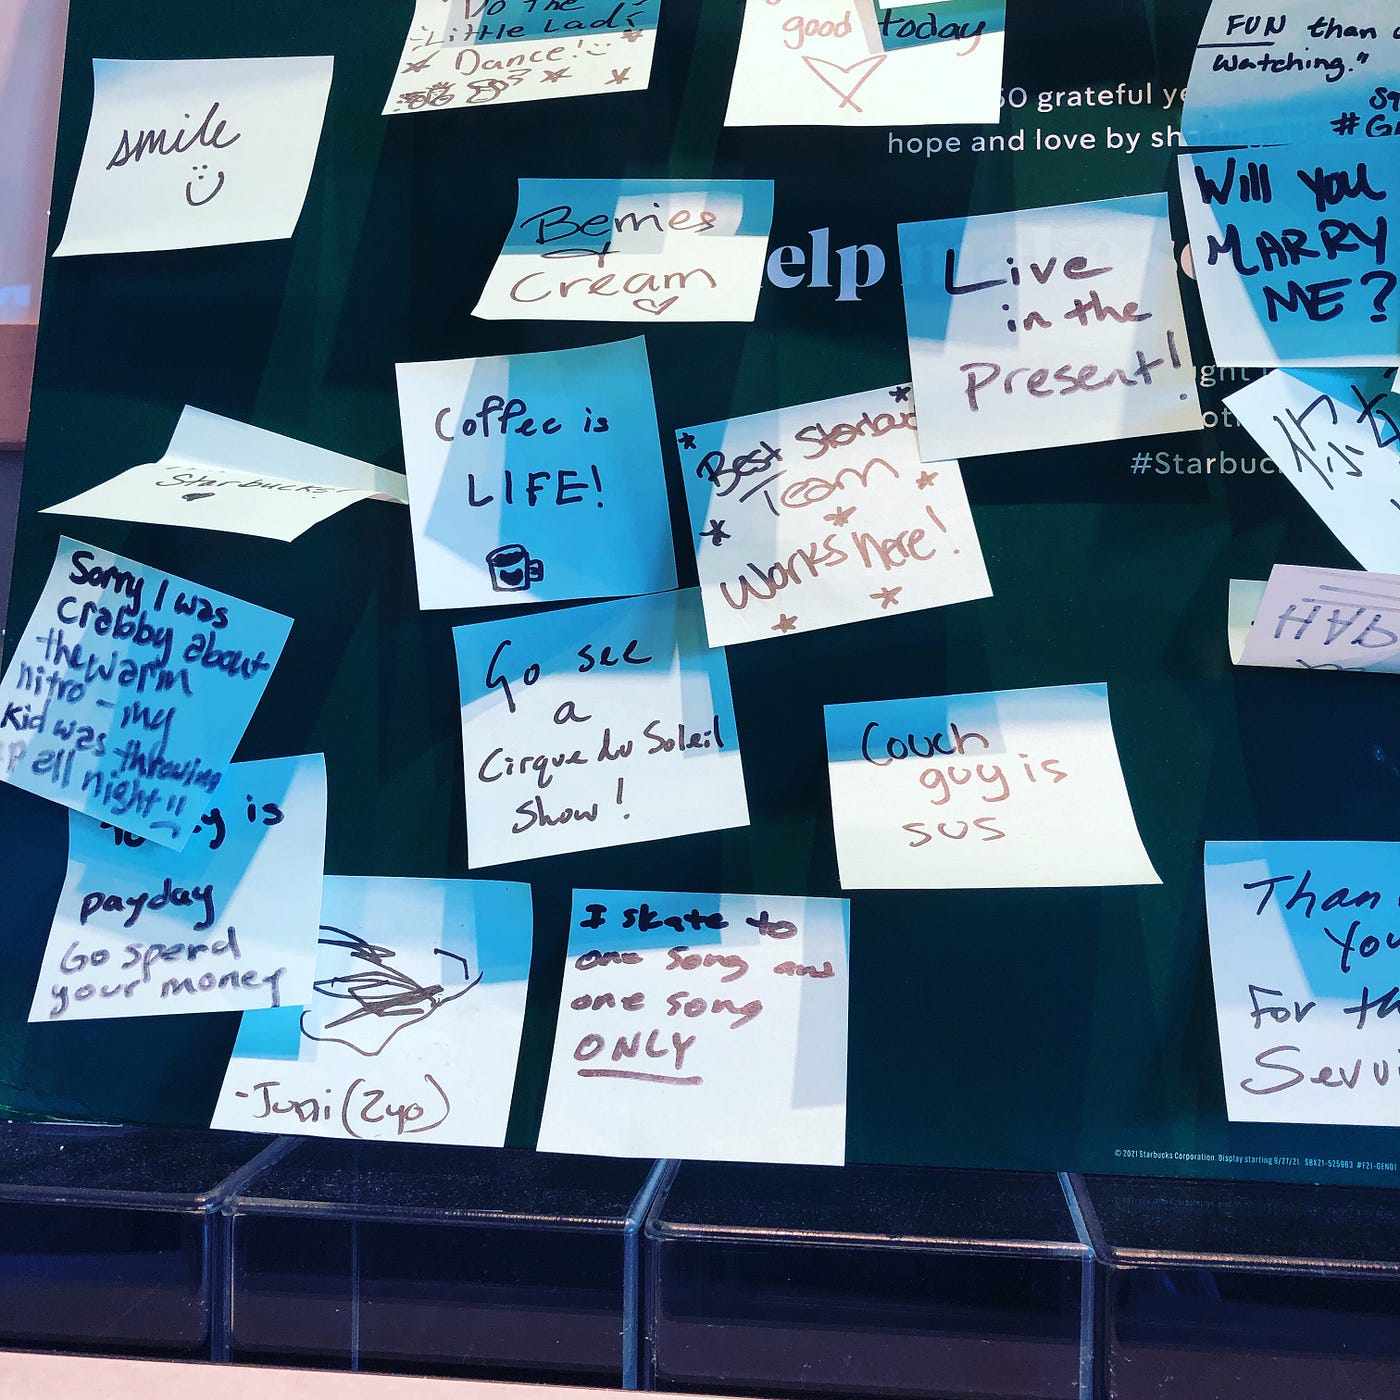 "Do the
Little Lad
Dance!
good today
FUN than
watching."
#G
smile
50 grateful
hope and love by
elp
Berries
&
Cream
Live
in the
Present!
Will you
MARRY
ME?
Coffee is
LIFE!
Best
Team
Works Here!
#Starbuc
Starbucks!
Sorry I was
crabby about
the warm
nitro - my
kid was throwing
up all night!!
is
payday
Go spend
your money
Go see
a
Cirque du Soleil
show!
Couch
guy is
sus
HAH
-Juni (2yo)
I skate to
one song and
one song
ONLY
Than
You
For th
© 2021 Starbucks Corporation. Display starting 9/27/21. SBX21-525963 #F21-GENQ1